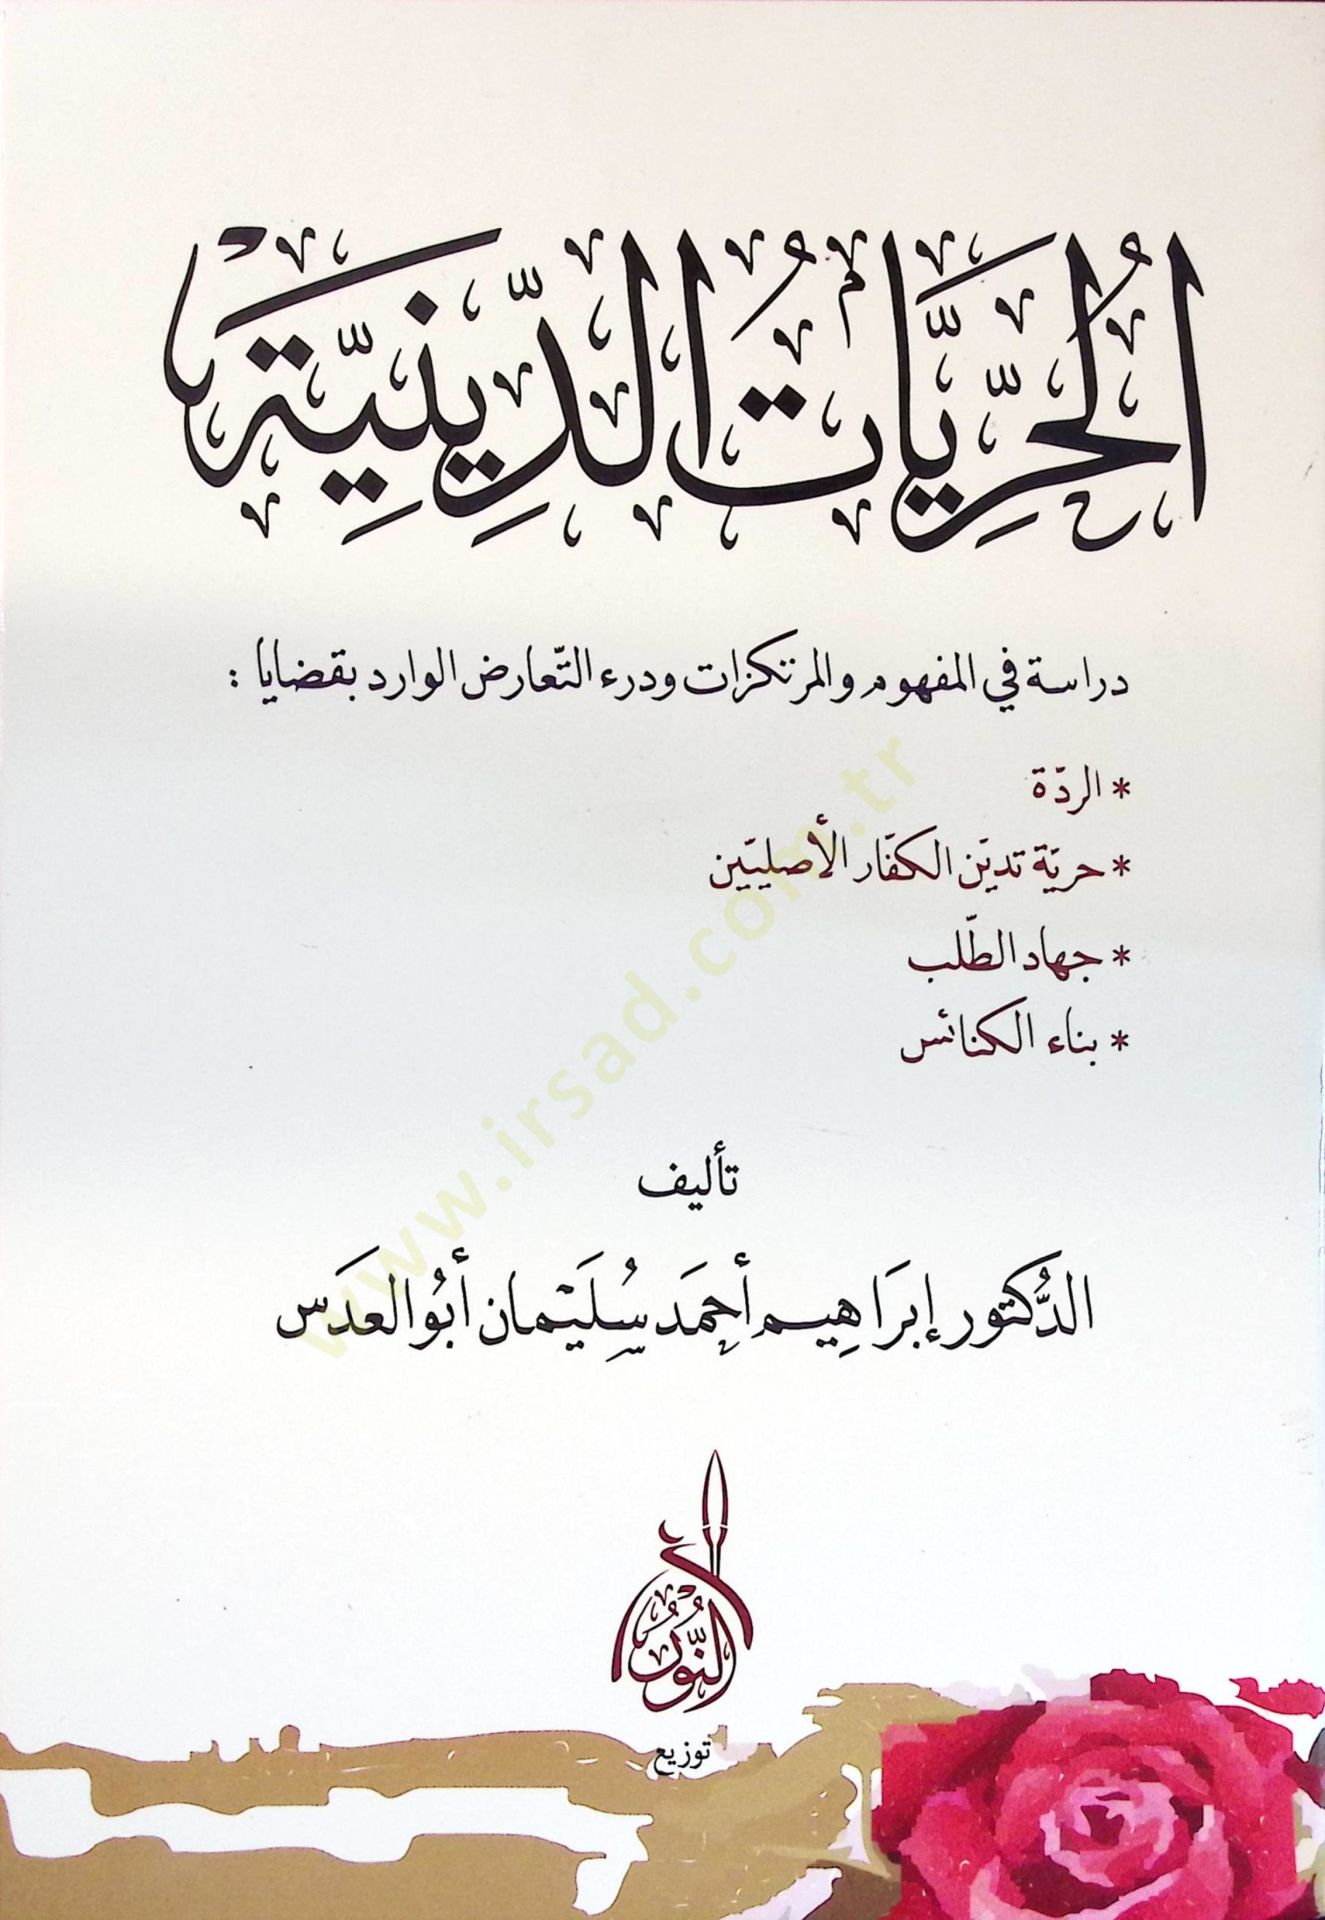 الحُرِّيَّاتُ الدِّينِيَّة
دراسة في المفهوم والمرتكزات ودرء التّعارض الوارد بقضايا :
* الردّة
* حريّة تديّن الكفّار الأصليّين
* جهاد الطّلب
* بناء الكنائس
تأليف
الدُّكتور إبرَاهِيم أحمَد سُلَيْمان أبُو العَدَس
النُّور
توزيع
www.irsad.com.tr